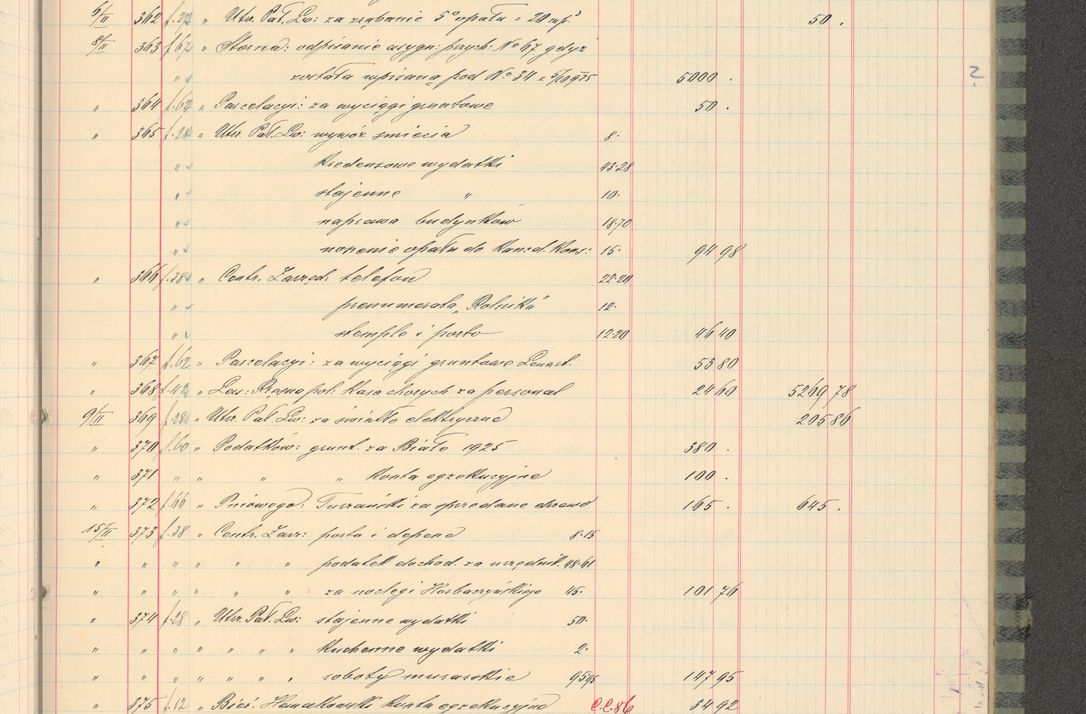 6/II 362 f.28 " Utrz. Pał. Lw: za rąbanie 5° opału = 20 mp³ 50 .
8/II 363 f.67 " Storna: odpisanie asygn: przych. No 67 gdyż
" została wpisaną pod No 34 z 5/II 1925 5000 .
" 364 f.62 " Parcelacyi: za wyciągi gruntowe 50 .
" 365 f.28 " Utrz. Pał. Lw: wywóz śmiecia 8.
" kredensowe wydatki 43.28
" stajenne " 10.
" naprawa budynków 18.70
" noszenie opału do 15. 94 98
" 366 f.38 " Centr. Zarząd: telefon 22.20
" prenumerata "Rolnika" 12.
" stemple i porto 12.20 46 40
" 367 f.62 " Parcelacyi: za wyciągi gruntowe 53 80
" 368 f.42 " Kasa chorych za personal 24 60 5269 78
9/II 369 f.28 " Utrz. Pał. Lw: za światło elektryczne 205 86
" 370 f.60 " Podatków: grunt. za Białe 1925 380 .
" 371 " " " koszta egzekucyjne 100 .
" 372 f.66 " Pniowego: za sprzedane drzewo 165 . 645 .
15/II 373 f.38 " Centr. Zarz: porto i depesze 8.15
" " " " " " " podatek dochod. za urzędnik. 48.61
" " " " " " " za noclegi Horbaczyńskiego 45. 101 76
" 374 f.28 " Utrz. Pał. Lw: stajenne wydatki 50.
" " " " " " " kuchenne wydatki 2.
" " " " " " " roboty murarskie 95.95 147 95
" 375 f.12 " Bież: koszta egzekucyjne C.C.86 34 92